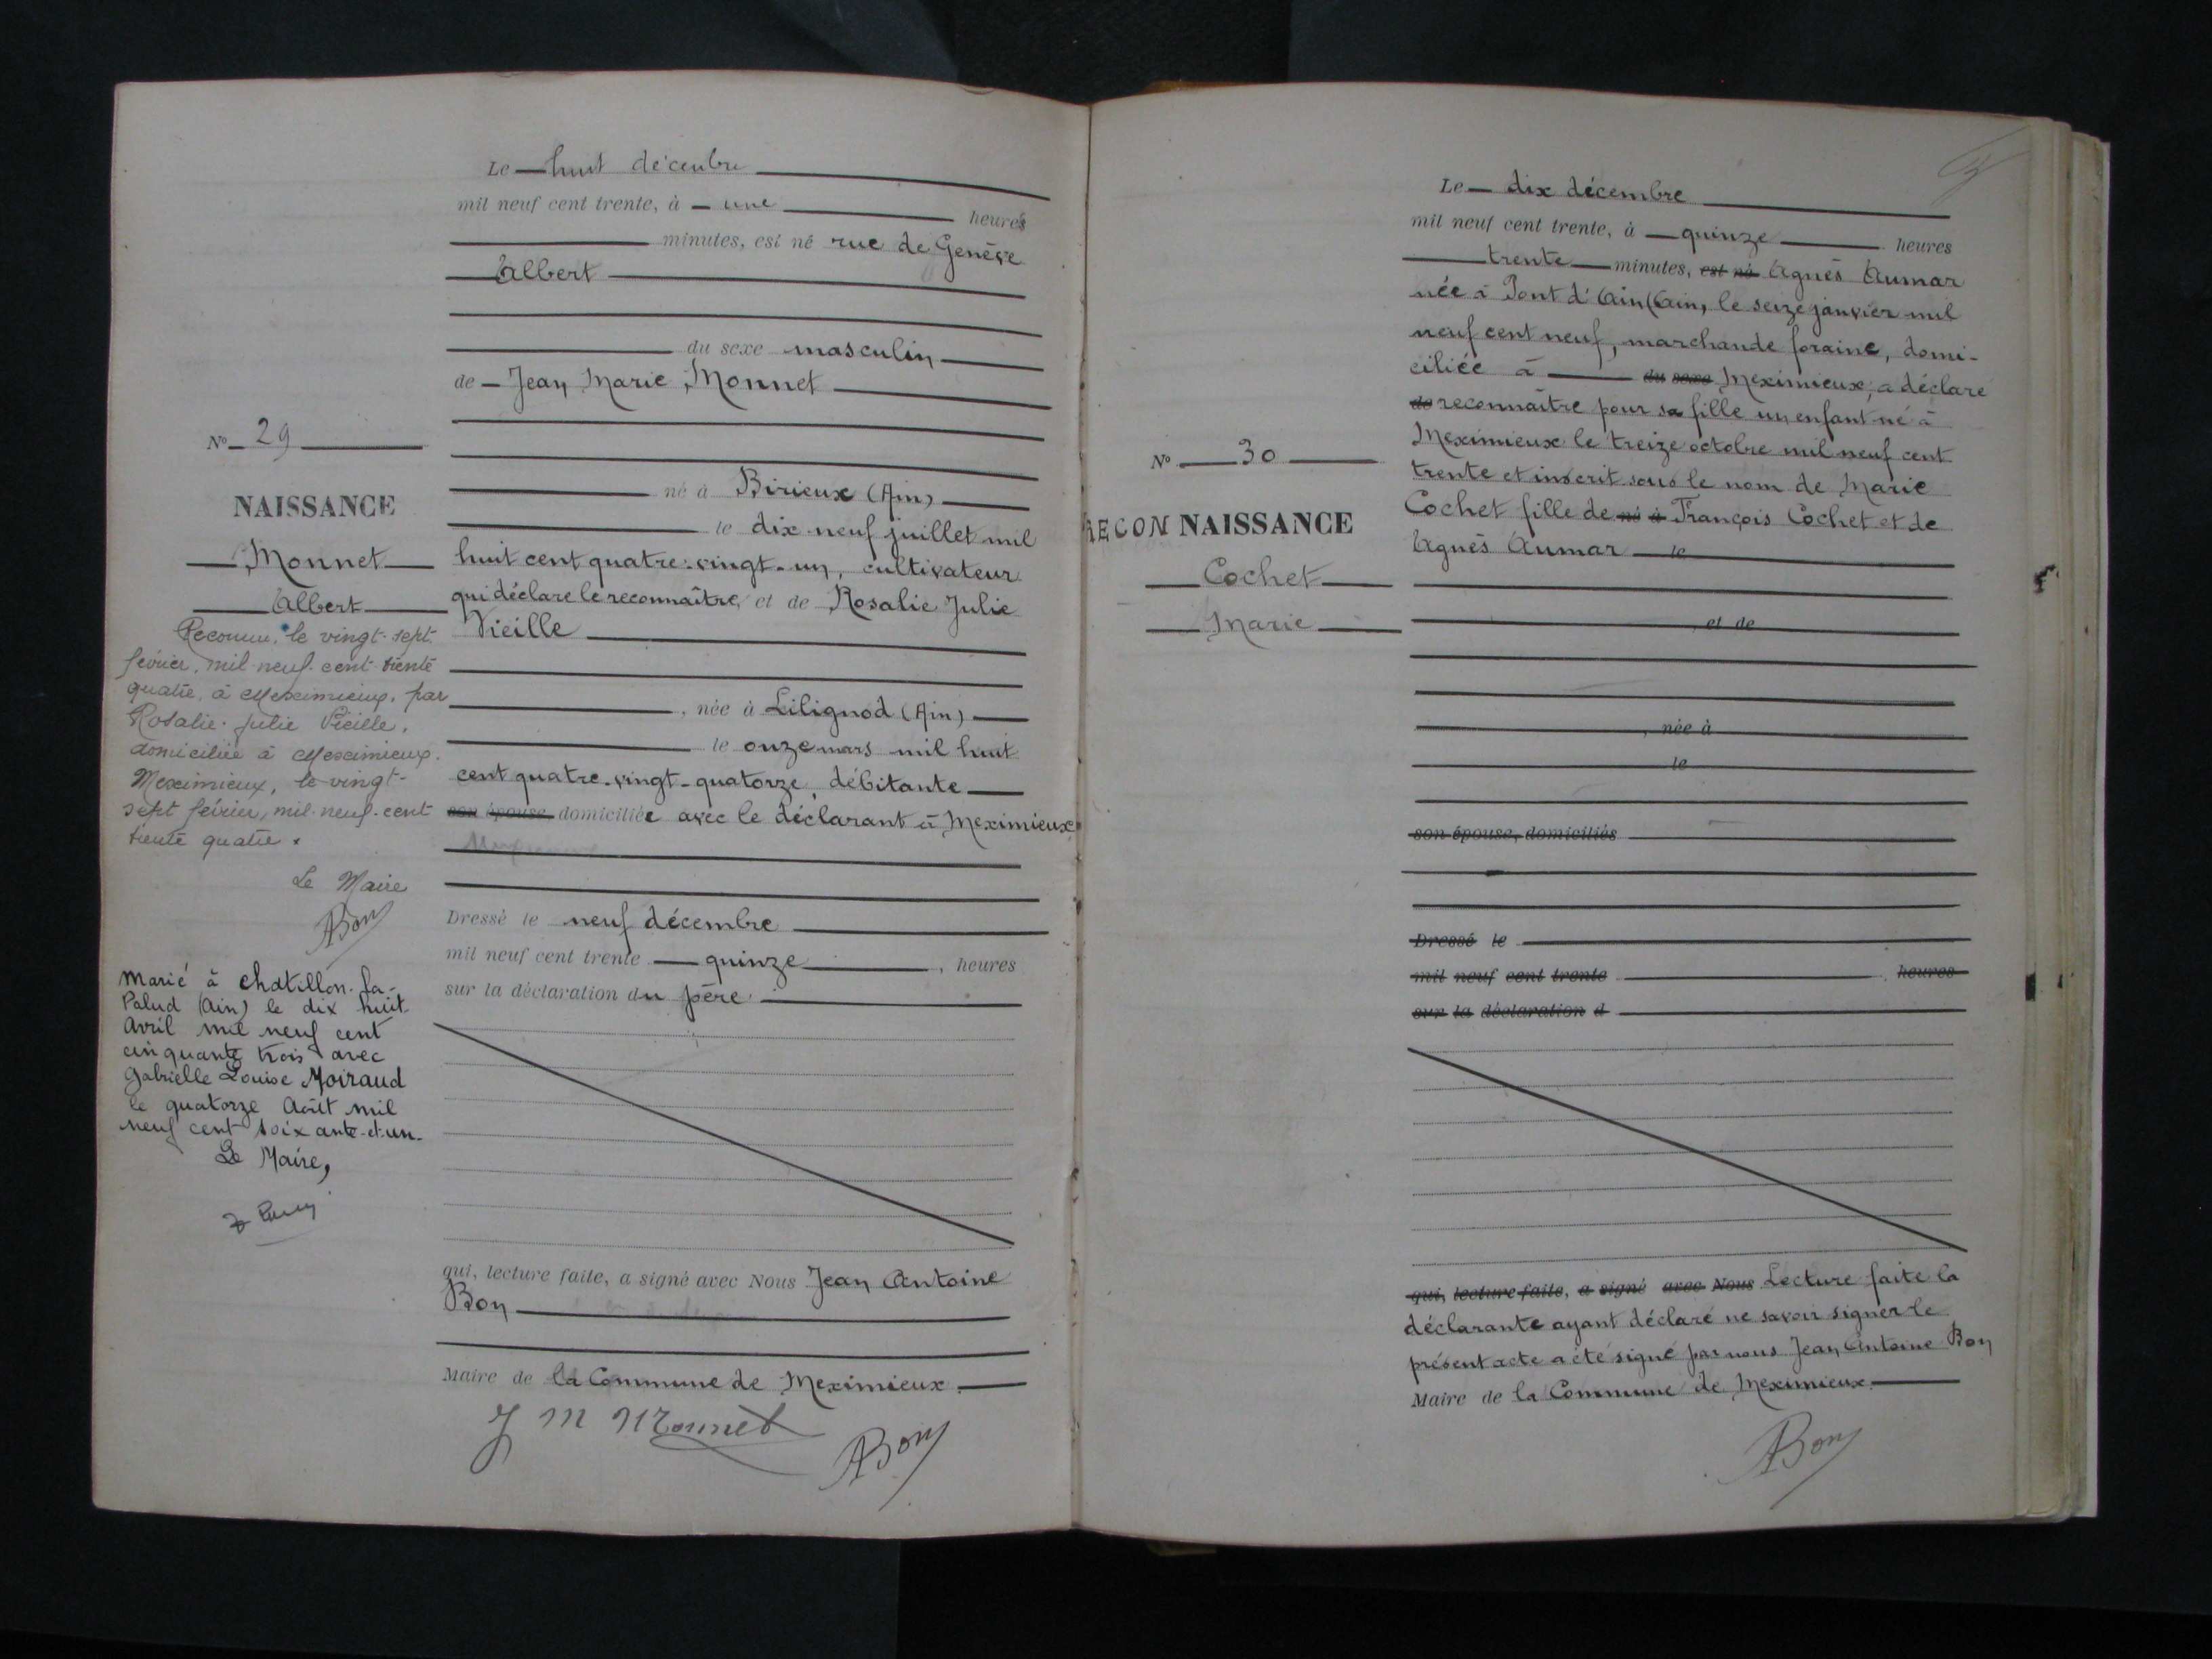 Le huit décembre
mil neuf cent trente, à une heures
minutes, est né rue de Genève
Albert
du sexe masculin
de Jean Marie Monnet
né à Birieux (Ain)
le dix neuf juillet mil
huit cent quatre-vingt-un, cultivateur
qui déclare le reconnaître, et de Rosalie Julie
Vieille
, née à Lilignod (Ain)
le onze mars mil huit
cent quatre-vingt-quatorze, débitante
son épouse domiciliée avec le déclarant à Meximieux
Dressé le neuf décembre
mil neuf cent trente quinze, heures
sur la déclaration du père
qui, lecture faite, a signé avec Nous Jean Antoine
Bon
Maire de la Commune de Meximieux
J M Monnet
ABon
No 29
NAISSANCE
Monnet
Albert
Reconnu, le vingt-sept
février, mil-neuf-cent-trente
quatre, à Meximieux, par
Rosalie-Julie Vieille,
domiciliée à Meximieux.
Meximieux, le vingt-
sept février, mil-neuf-cent
trente quatre.
Le Maire
ABon
Marié à Chatillon-La-
Palud (Ain) le dix huit
Avril mil neuf cent
cinquante trois avec
Gabrielle Louise Moiraud
le quatorze Août mil
neuf cent soixante-et-un.
Le Maire,
Le dix décembre
mil neuf cent trente, à quinze heures
trente minutes, est né Agnès Aumar
née à Pont d'Ain (Ain, le seize janvier mil
neuf cent neuf, marchande foraine, domi-
ciliée à du sexe Meximieux, a déclaré
de reconnaître pour sa fille un enfant né à
Meximieux le treize octobre mil neuf cent
trente et inscrit sous le nom de Marie
Cochet fille de né à François Cochet et de
Agnès Aumar le
et de
, née à
le
son épouse, domiciliés
Dressé le
mil neuf cent trente , heures
sur la déclaration d
qui, lecture faite, a signé avec Nous Lecture faite la
déclarante ayant déclaré ne savoir signer le
présent acte a été signé par nous Jean Antoine Bon
Maire de la Commune de Meximieux
ABon
No 30
RECONNAISSANCE
Cochet
Marie